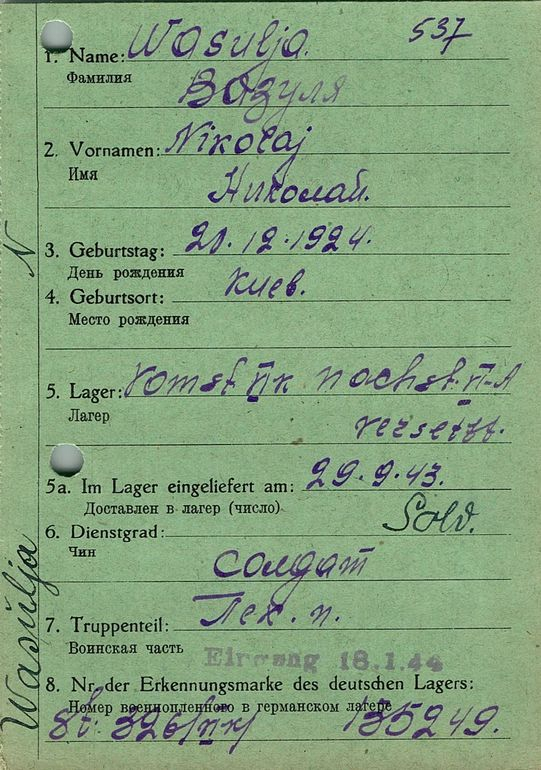 537
1. Name: Wasulja.
Фамилия
Вазуля
2. Vornamen: Nikołaj
Имя
Николай.
3. Geburtstag: 20.12.1924.
День рождения
4. Geburtsort: Киев.
Место рождения
5. Lager: vomst VIK nachst. II-A
Лагер
versetzt.
5a. Im Lager eingeliefert am: 29.9.43.
Доставлен в лагер (число)
6. Dienstgrad: Sold.
Чин
солдат
7. Truppenteil: Пех. п.
Воинская часть
Eingang 18.1.44
8. Nr. der Erkennungsmarke des deutschen Lagers:
Номер военнопленного в германском лагере
St. 326/VIK/ 135249.
N
Wasulja